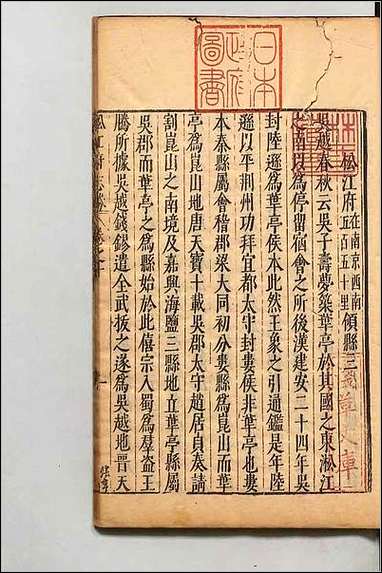 松江府在南京西南五百五十里領縣三
吳越春秋云吳子壽夢築華亭於其國之東淞江
之南以為停留宿會之所後漢建安二十四年吳
封陸遜為華亭侯本此然王象之引通鑑是年陸
遜以平荆州功拜宜都太守封婁侯非華亭也婁
本秦縣屬會稽郡梁大同初分婁縣為崑山而華
亭為崑山地唐天寶十載吳郡太守趙居貞奏請
割崑山之南境及嘉興海鹽三縣地立華亭縣屬
吳郡而華亭之為縣始於此僖宗入蜀為羣盗王
騰所據吳越錢鏐遣全武拔之遂為吳越地晉天
松江府志
一
日本
圖書
文庫